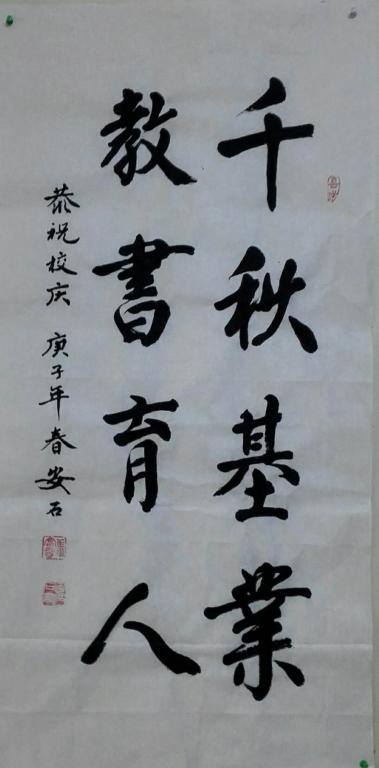 千秋基業
教書育人
恭祝校庆 庚子年春安石